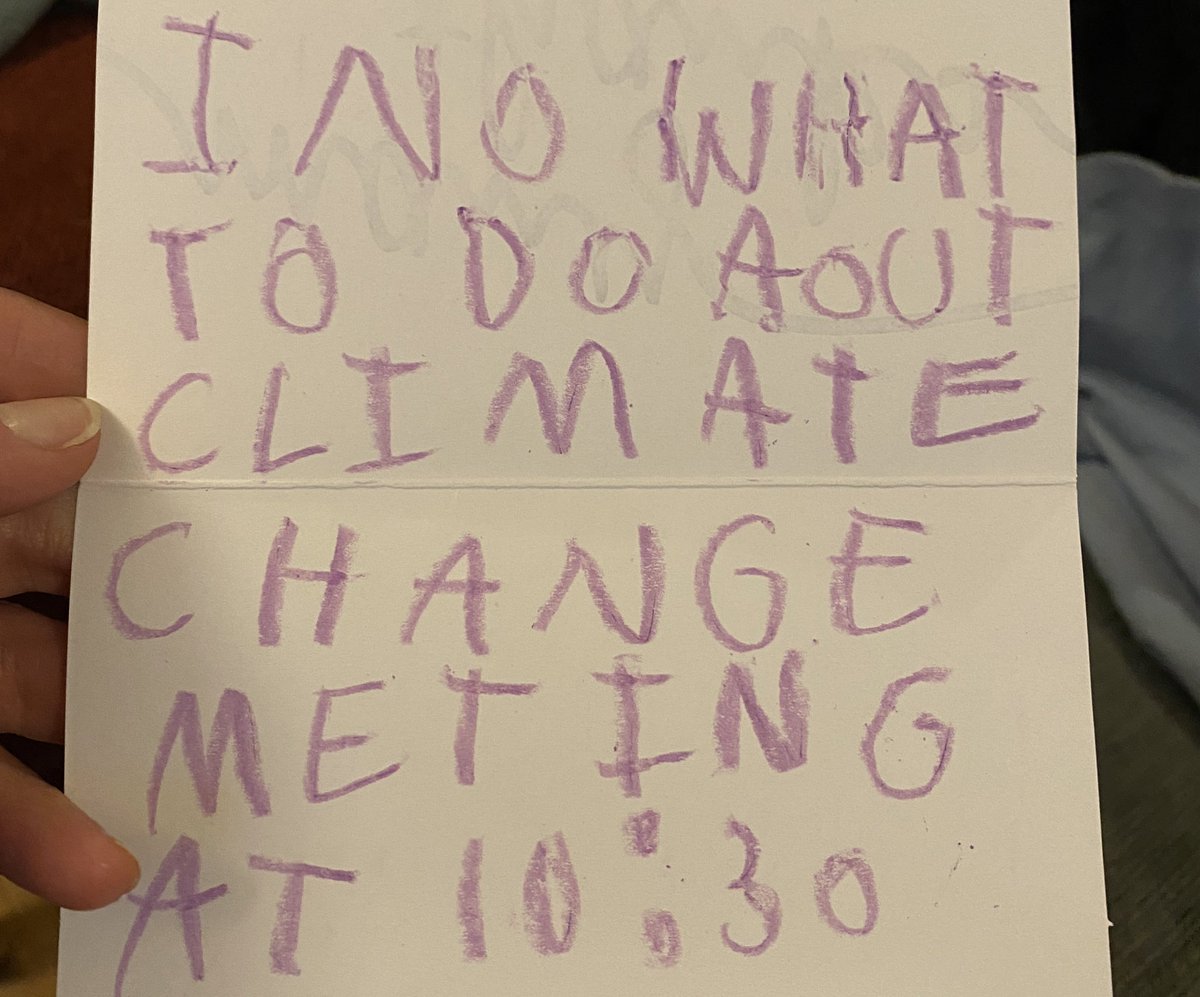 I NO WHAT
TO DO AOUT
CLIMATE
CHANGE
METING
AT 10:30